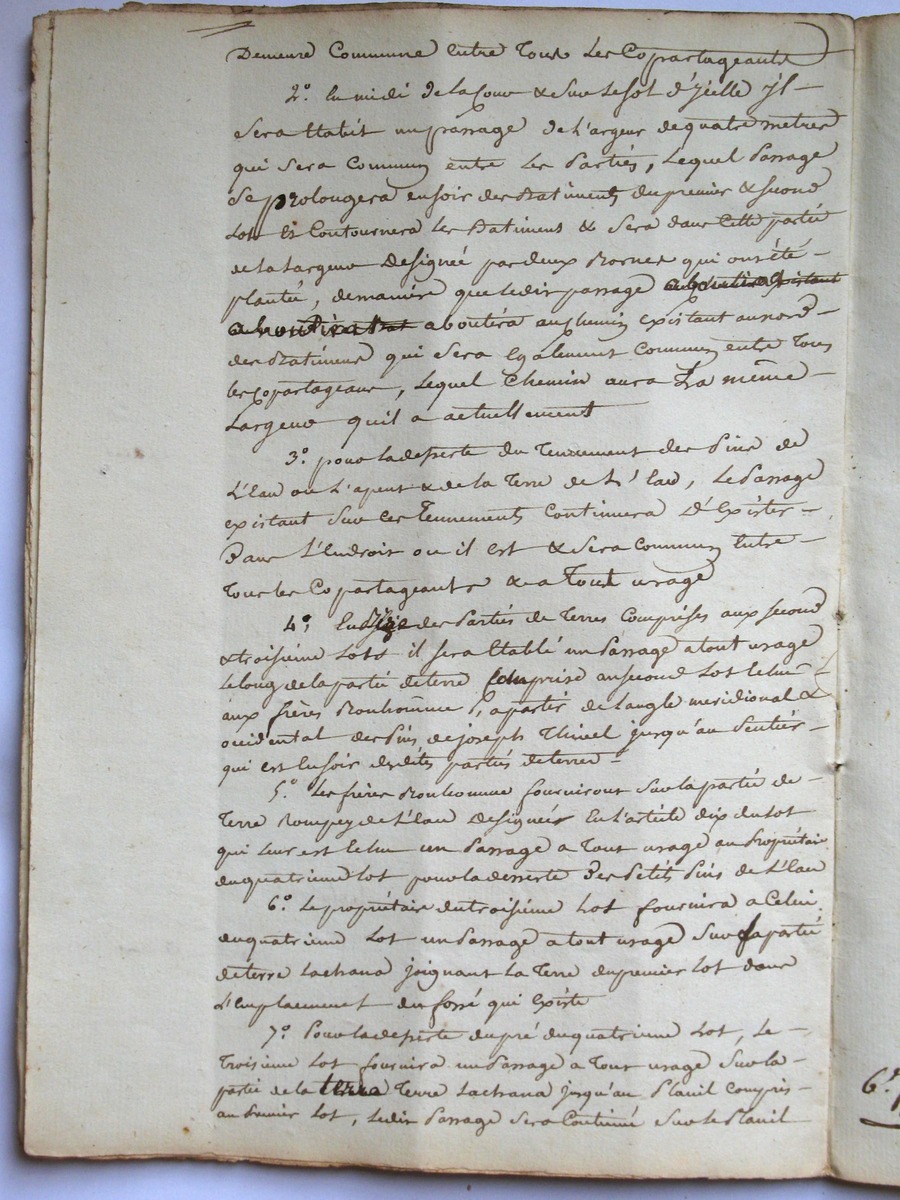 Demeure Commune Entre Tous Les Copartageants
2.° En midi de la Cour & Sur Le Sol d'ycelle yl –
Sera Etabli un passage de L'argeur de quatre metres
qui Sera Commun entre Les Parties, Lequel Passage
Se prolongera en soir des Batiments du premier & second
Lots Et Contournera Les Batiments & Sera dans Cette partie
de La Largeur Designée par deux Bornes qui ont été –
planté, de maniere que Ledit passage
aboutira au chemin existant au nord –
des Batiments qui Sera Egalement Commun entre Tous
les Copartageans, Lequel Chemin aura La même –
Largeur qu'il a actuellement
3.° pour La desserte du Tennement des Pins de
L'Eau ou L'apent & de La Terre de L'Eau, Le Passage
existant Sur Ces Tennements Continuera D'Exister –
Dans L'Endroit ou il est & Sera Commun Entre –
Tous les Copartageants & a Tout usage
4.° En des Parties de Terres Comprises aux second
& troisieme Lots il sera Etablé un Passage a tout usage
Le long de la partie de terre Comprise au second Lot Echue
aux frères Bonhomme, a partir de Langle meridional &
occidental des Pins de joseph jusqu'au Sentier –
qui est En soir desdites parties de terres –
5.° Les freres Bonhomme fourniront Sur La partie de –
Terre Rompey de L'Eau Designées En L'article dix du Lot
qui Leur est Echu un Passage a Tout usage au Propriétaire
du quatrieme Lot pour La desserte Des Petits Pins de L'Eau
6.° Le propriétaire du troisieme Lot fournira a Celui
du quatrieme Lot un Passage a tout usage Sur La partie
de terre Lachana joignant La Terre du premier Lot dans
L'Emplacement du fossé qui Existe
7.° Pour La desserte du pré du quatrieme Lot, Le –
Troisieme Lot fournira un Passage a Tout usage Sur la –
partie de la Terre Lachana jusqu'au Planil Compris –
au Premier Lot, Ledit Passage Sera Continué Sur Le Planil
6.°